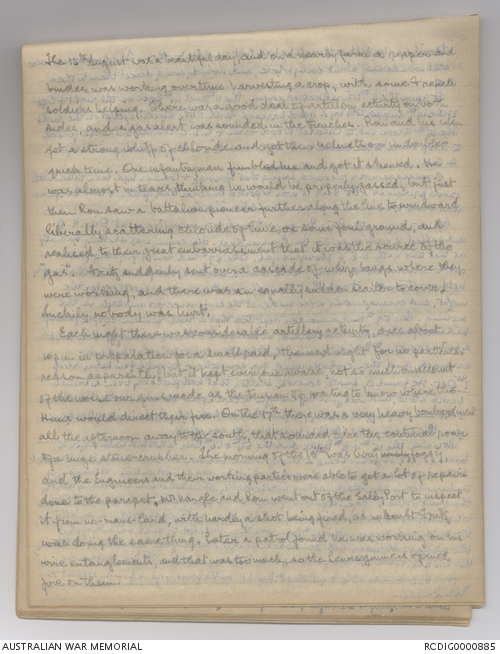 The 15th August was a beautiful day, and on a nearby farm a reaper and
binder was working overtime harvesting a crop, with some French
soldiers helping. There was a good deal of artillery activity on both
sides, and a gas alert was sounded in the trenches. Ron and his men
got a strong whiff of chloride and got their helmets on in double
quick time. One infantryman fumbled his and got it skewed. He
was almost in tears thinking he would be properly gassed, but just
then Ron saw a battalion pioneer further along the line to windward
liberally scattering chloride of lime on some foul ground, and
realised to their great embarrassment that it was the source of the
"gas". Fritz suddenly sent over a cascade of whizz bangs where they
were working, and there was an equally sudden scatter to cover,
luckily nobody was hurt.
Each night there was considerable artillery activity, even about
10 pm in preparation for a small raid, the next night for no particular
reason apparently, but it kept everyone awake, not so much on account
of the noise our guns made, as the tension of waiting to know where the
Huns would direct their fire. On the 17th there was a very heavy bombardment
all the afternoon away to the south, that sounded like the continual roar
of a huge stone-crusher. The morning of the 18th was very misty foggy
and the Engineers and their working parties were able to get a lot of repairs
done to the parapet. Mr and Ron went out of the Sally Port to inspect
it from no-mans-land, with hardly a shot being fired, as no doubt Fritz
was doing the same thing. Later a patrol found he was working on his
wire entanglements, and that was too much, so the Lewis gunners opened
fire on them.
AUSTRALIAN WAR MEMORIAL
RCDIG0000885